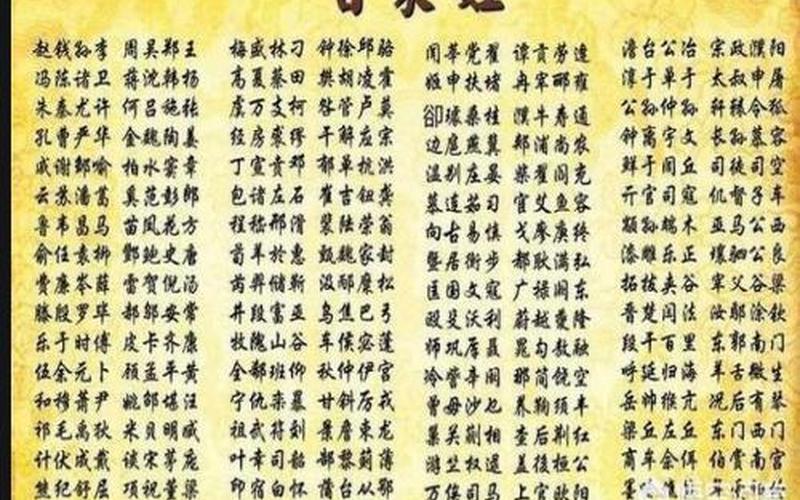 百家姓
赵钱孙李 周吴郑王
冯陈诸卫 蒋沈韩杨
朱秦尤许 何吕施张
孔曹严华 金魏陶姜
戚谢邹喻 柏水窦章
云苏潘葛 奚范彭郎
鲁韦昌马 苗凤花方
俞任袁柳 酆鲍史唐
费廉岑薛 雷贺倪汤
滕殷罗毕 郝邬安常
乐于时傅 皮卡齐康
伍余元卜 顾孟平黄
和穆萧尹 姚邵堪汪
祁毛禹狄 米贝明臧
计伏成戴 谈宋茅庞
熊纪舒屈 项祝董梁
梅盛林刁 钟徐邱骆
高夏蔡田 樊胡凌霍
虞万支柯 昝管卢莫
经房裘缪 干解应宗
丁宣贲邓 郁单杭洪
包诸左石 崔吉钮龚
程嵇邢滑 裴陆荣翁
荀羊於惠 甄魏家封
芮羿储靳 汲邴糜松
井段富巫 乌焦巴弓
牧隗山谷 车侯宓蓬
全郗班仰 秋仲伊宫
宁仇栾暴 甘斜厉戎
祖武符刘 景詹束龙
叶幸司韶 郜黎蓟薄
印宿白怀 蒲台从鄂
闻莘党翟 谭贡劳逄
姬申扶堵 冉宰郦雍
卻璩桑桂 濮牛寿通
边扈燕冀 郏浦尚农
温别庄晏 柴瞿阎充
慕连茹习 宦艾鱼容
向古易慎 戈廖庾终
暨居衡步 都耿满弘
匡国文寇 广禄阙东
殴殳沃利 蔚越夔隆
师巩厍聂 晁勾敖融
冷訾辛阚 那简饶空
曾毋沙乜 养鞠须丰
巢关蒯相 查后荆红
游竺权逯 盖後桓公
万俟司马 上官欧阳
澹台公冶 宗政濮阳
淳于单于 太叔申屠
公孙仲孙 轩辕令狐
钟离宇文 长孙慕容
鲜于闾丘 司徒司空
亓官司寇 仉督子车
颛孙端木 巫马公西
漆雕乐正 壤驷公良
拓拔夹谷 宰父谷梁
晋楚闫法 汝鄢涂钦
段干百里 东郭南门
呼延归海 羊舌微生
岳帅缑亢 况后有琴
梁丘左丘 东门西门
商牟佘佴 伯赏南宫